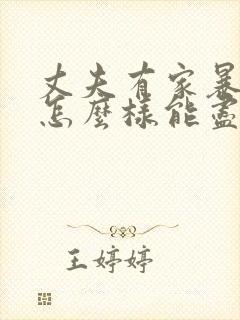 丈夫有家暴
怎麼樣能盡
王婷婷